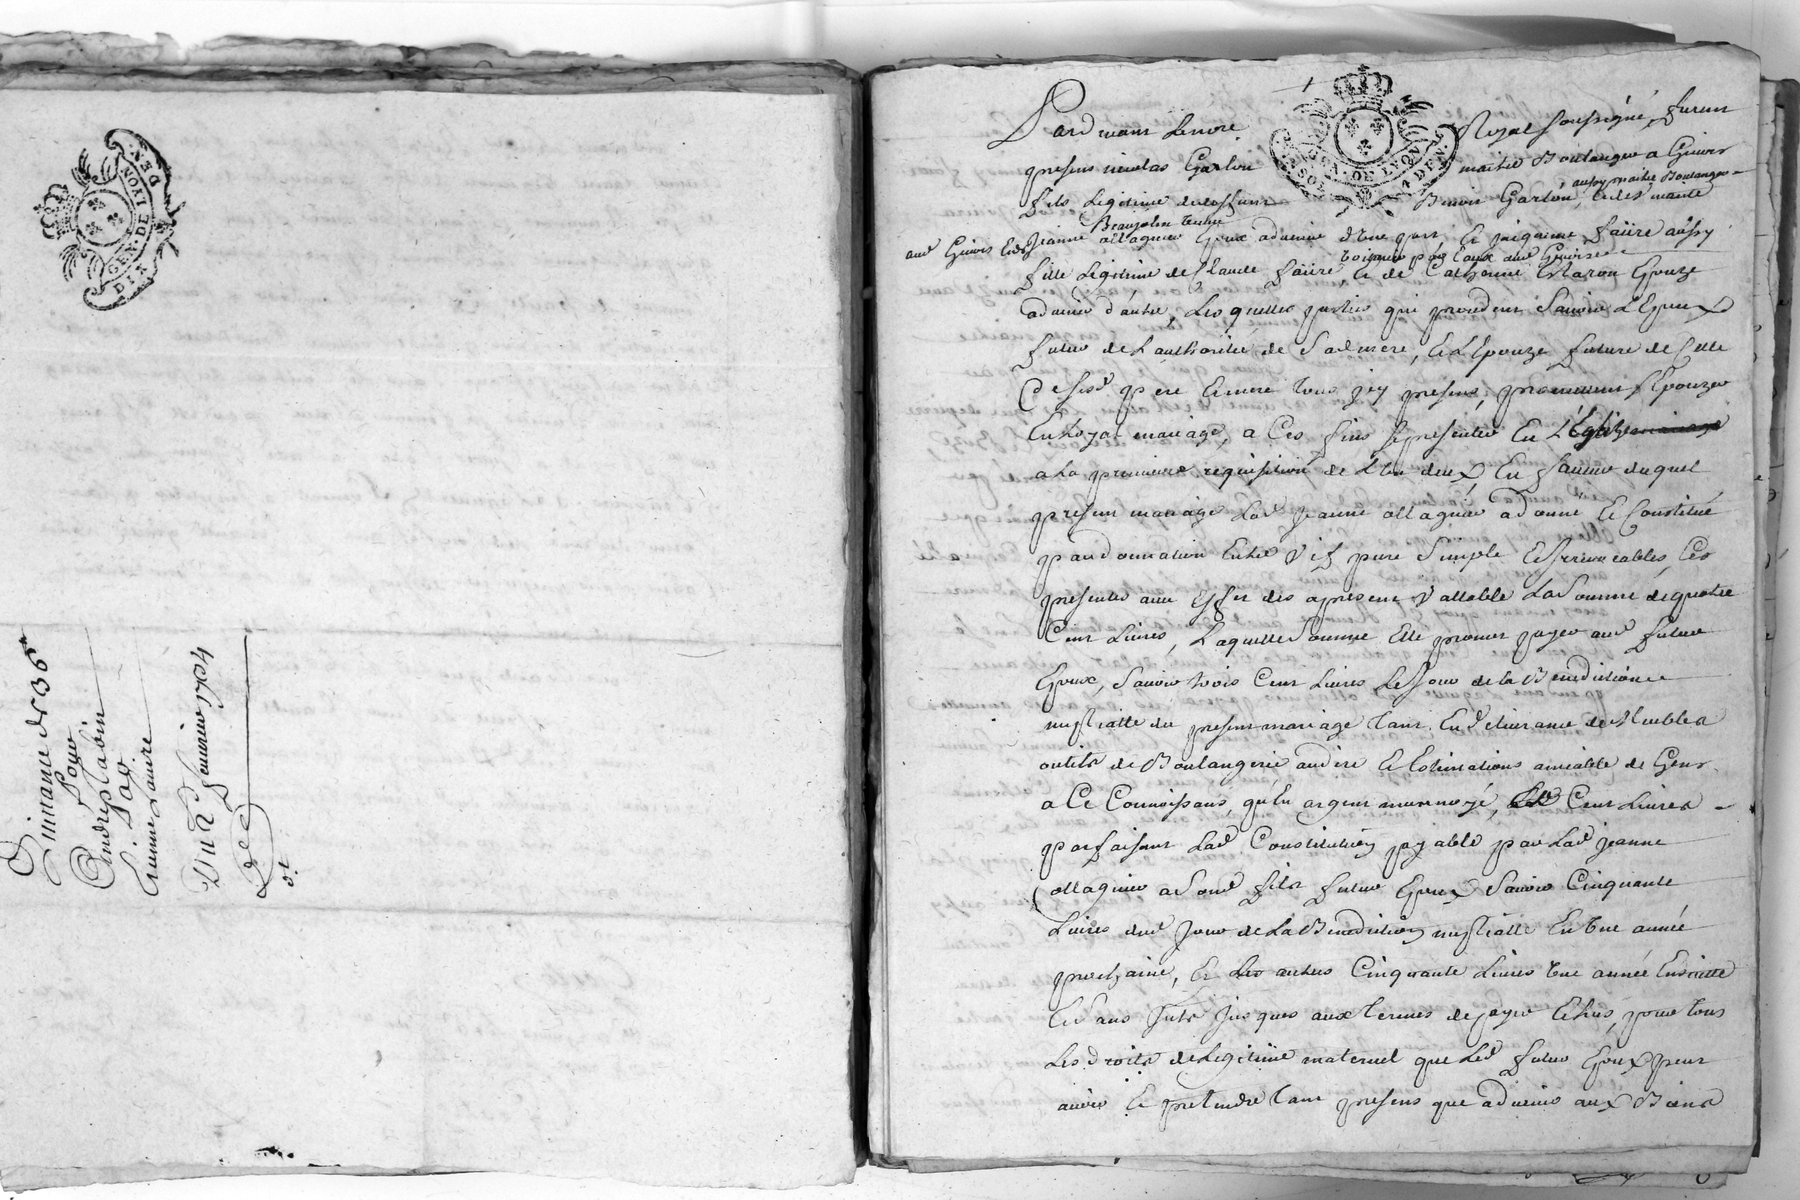 GEN. DE LYON
DIX DEN.
Quittance de 36ᵗᵗ
Pour
André plabin
Par
Etienne Faure
Du 25 feurier 1704
GEN. DE LYON
SOL 4 DEN.
Pard uant Le no.re Royal soussigné, furent
presens nicolas Garlon maitre Boulanger a Giuors
aussy maitre Boulanger
fils Legitime de deffunt Benoit Garlon, de
Beaujolin veuue
aud Giuors Et de Jeanne allaguier Epoux aduenir d'Une part Et Faüre aussy
voiturier par eaux aud Giuors
fille Legitime de Claude faüre, Et de Catherine Epouze
aduenir d'autre, Lesquelles parties qui procedent Sauoir L'Epoux
futur de L'authorité de Sad mere, Et L'Epouze future de Celle
De sesd pere Et mere tous icy presens, promettent s'Epouzer
En Loyal mariage, a Ces fins se presenter En L'Eglize
a La premiere requisition de L'un deux, En faueur duquel
present mariage Lad Jeanne allaguier a donné Et Constitué
par donnation Entre Vif pure Simple Et Irreuocable, Ces
presentes auec Effet des apresent Vallable La Somme de quatre
Cent Liures, Laquelle Somme Elle promet payer aud futur
Epoux, Sauoir trois Cent Liures Le Jour de la Benediction
nuptialle du present mariage tant En deliurance de Meubles
outils de Boulangerie au dire Et Estimations amiable de Gens
a Ce Connoissans, qu'En argent monnoyé, Cent Liures
parfaisant Lad Constitution payable par Lad Jeanne
allaguier a Sond fils futur Epoux Sauoir Cinquante
Liures dud Jour de La Benediction nuptialle En Une année
prochaine, Et Les autres Cinquante Liures Une année Ensuitte
Et Sans Jusques aux termes de payer Echus, pour tous
Les droits de Legitime maternel que Led futur Epoux peut
auoir Et pretendre tant presens que aduenir aux Biens